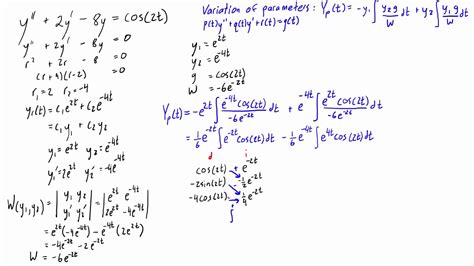 y'' + 2y' - 8y = cos(2t)
y'' + 2y' - 8y = 0
r² + 2r - 8 = 0
(r+4)(r-2) = 0
r₁ = 2 r₂ = -4
y_1(t) = c₁e^{2t} + c₂e^{-4t}
= c₁y₁ + c₂y₂
y₁ = e^{2t} y₂ = e^{-4t}
y₁' = 2e^{2t} y₂' = -4e^{-4t}
W(y₁,y₂) = |y₁ y₂; y₁' y₂'| = |e^{2t} e^{-4t}; 2e^{2t} -4e^{-4t}|
= e^{2t}(-4e^{-4t}) - e^{-4t}(2e^{2t})
= -4e^{-2t} - 2e^{-2t}
W = -6e^{-2t}
Variation of parameters: Y_p(t) = -y₁ ∫ y₂g/W dt + y₂ ∫ y₁g/W dt
p(t)y'' + q(t)y' + r(t) = g(t)
y₁ = e^{2t}
y₂ = e^{-4t}
g = cos(2t)
W = -6e^{-2t}
Y_p(t) = -e^{2t} ∫ e^{-4t}cos(2t)/-6e^{-2t} dt + e^{-4t} ∫ e^{2t}cos(2t)/-6e^{-2t} dt
= 1/6 e^{-2t} ∫ e^{-2t}cos(2t)dt - 1/6 e^{-4t} ∫ e^{4t}cos(2t)dt
d i
cos(2t) + e^{-2t}
-2sin(2t) - -1/2 e^{-2t}
-4cos(2t) → 1/4 e^{-2t}
∫